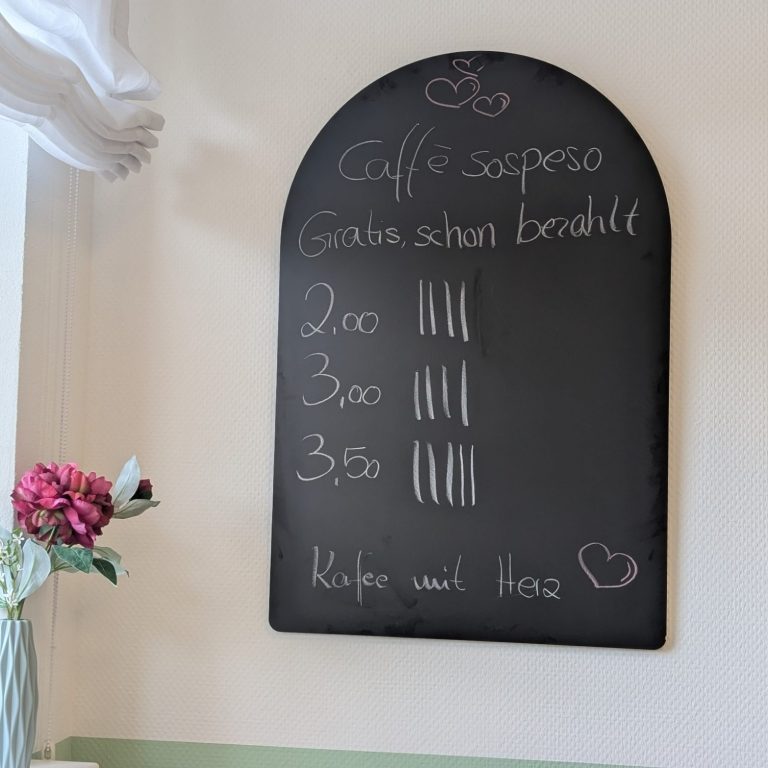 Caffè sospeso
Gratis, schon bezahlt
2,00 ||||
3,00 ||||
3,50 |||||
Kafee mit Herz